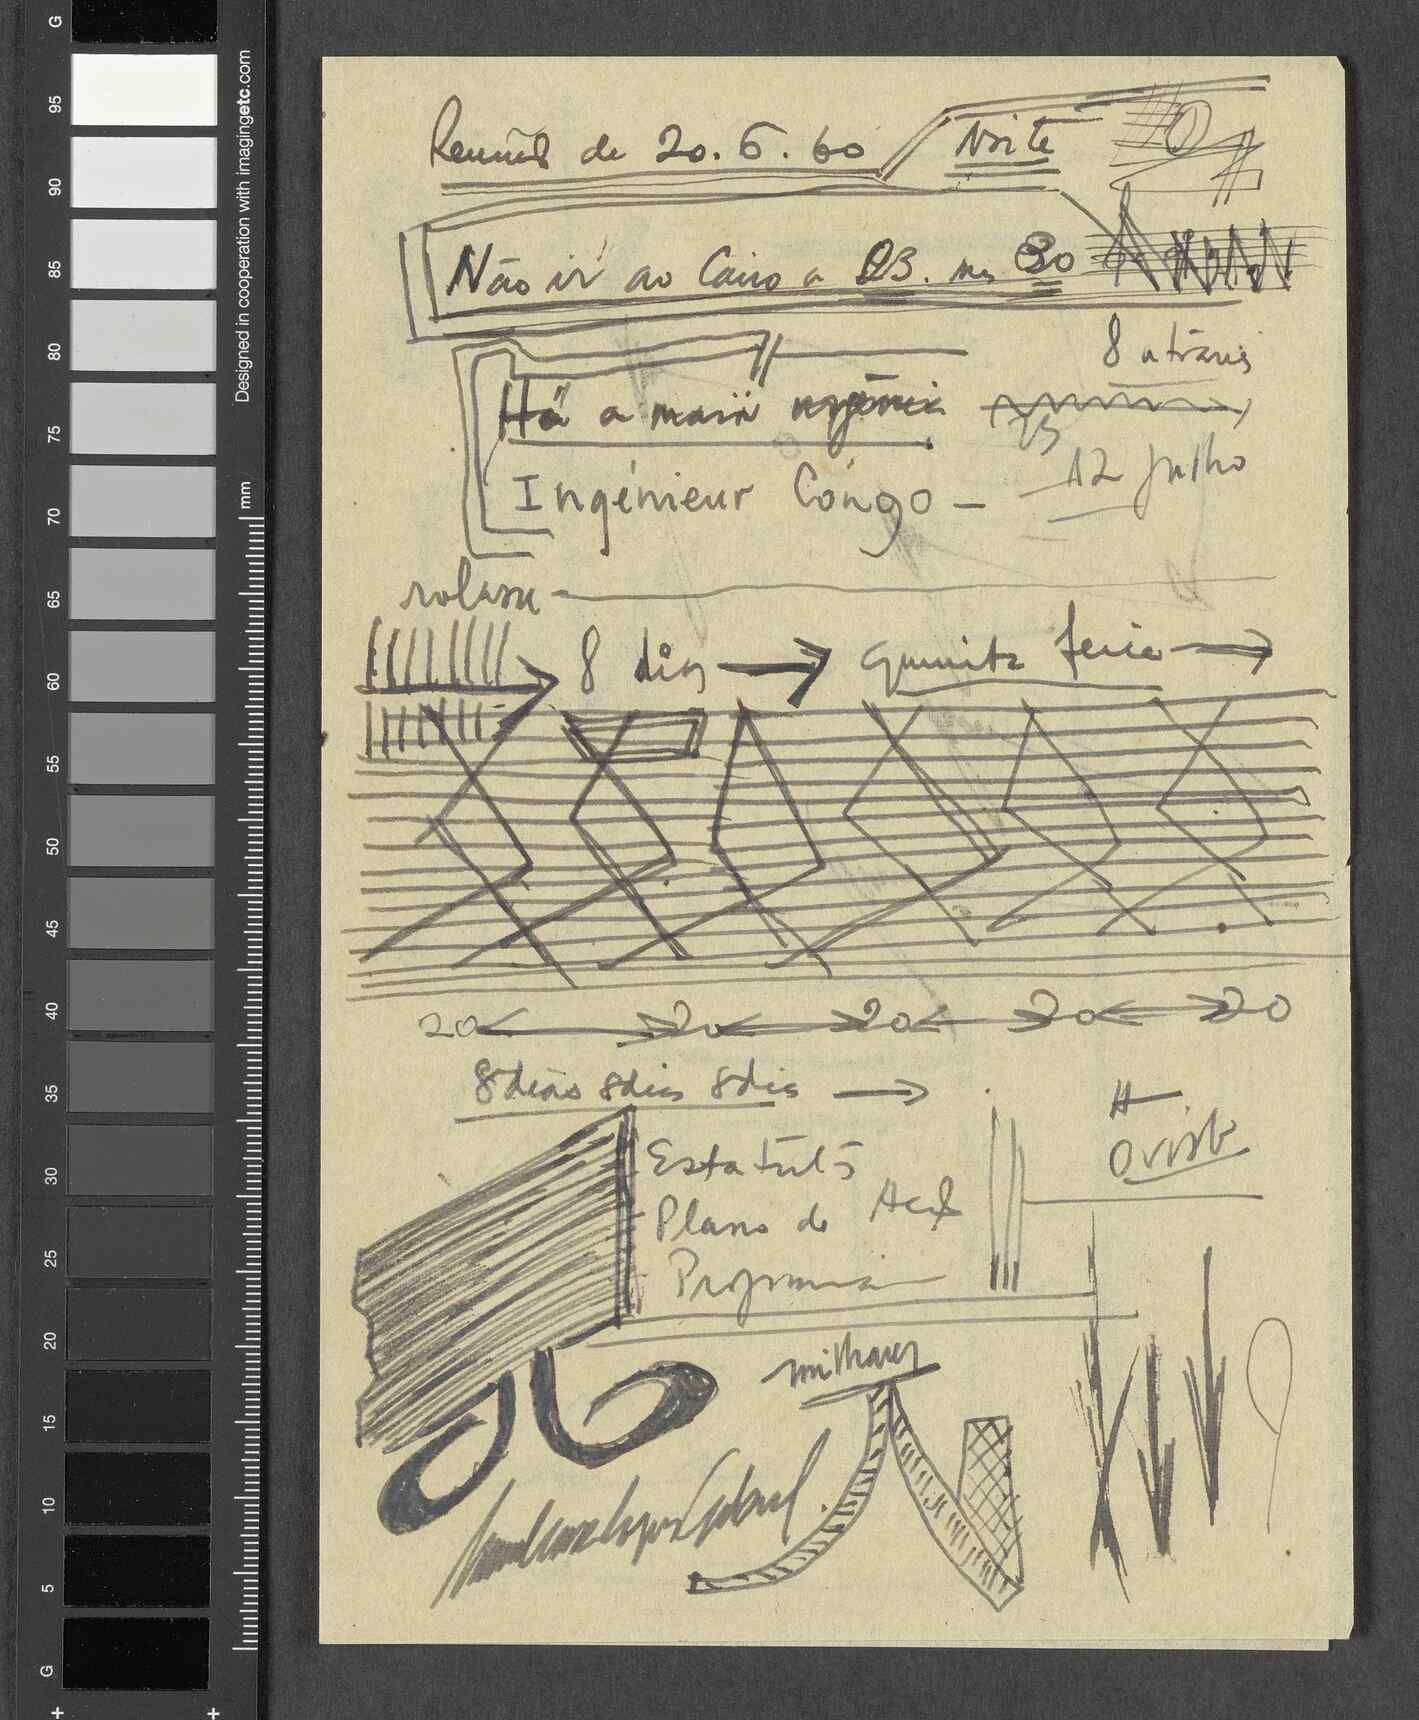 Reunião de 20.6.60 Noite
Não ir ao Cairo a 23. mas 30
8 atrás
Há a mais urgência
12 Julho
Ingénieur Cóngo -
8 dias → quinta feira →
20 20 20 20 20
8 dias 8 dias 8 dias →
Estatutos
Plano de Acção
Programa
milhares
Amilcar Lopes Cabral
G
95
90
85
80
75
70
65
60
55
50
45
40
35
30
25
20
15
10
5
G
mm
Designed in cooperation with imagingetc.com